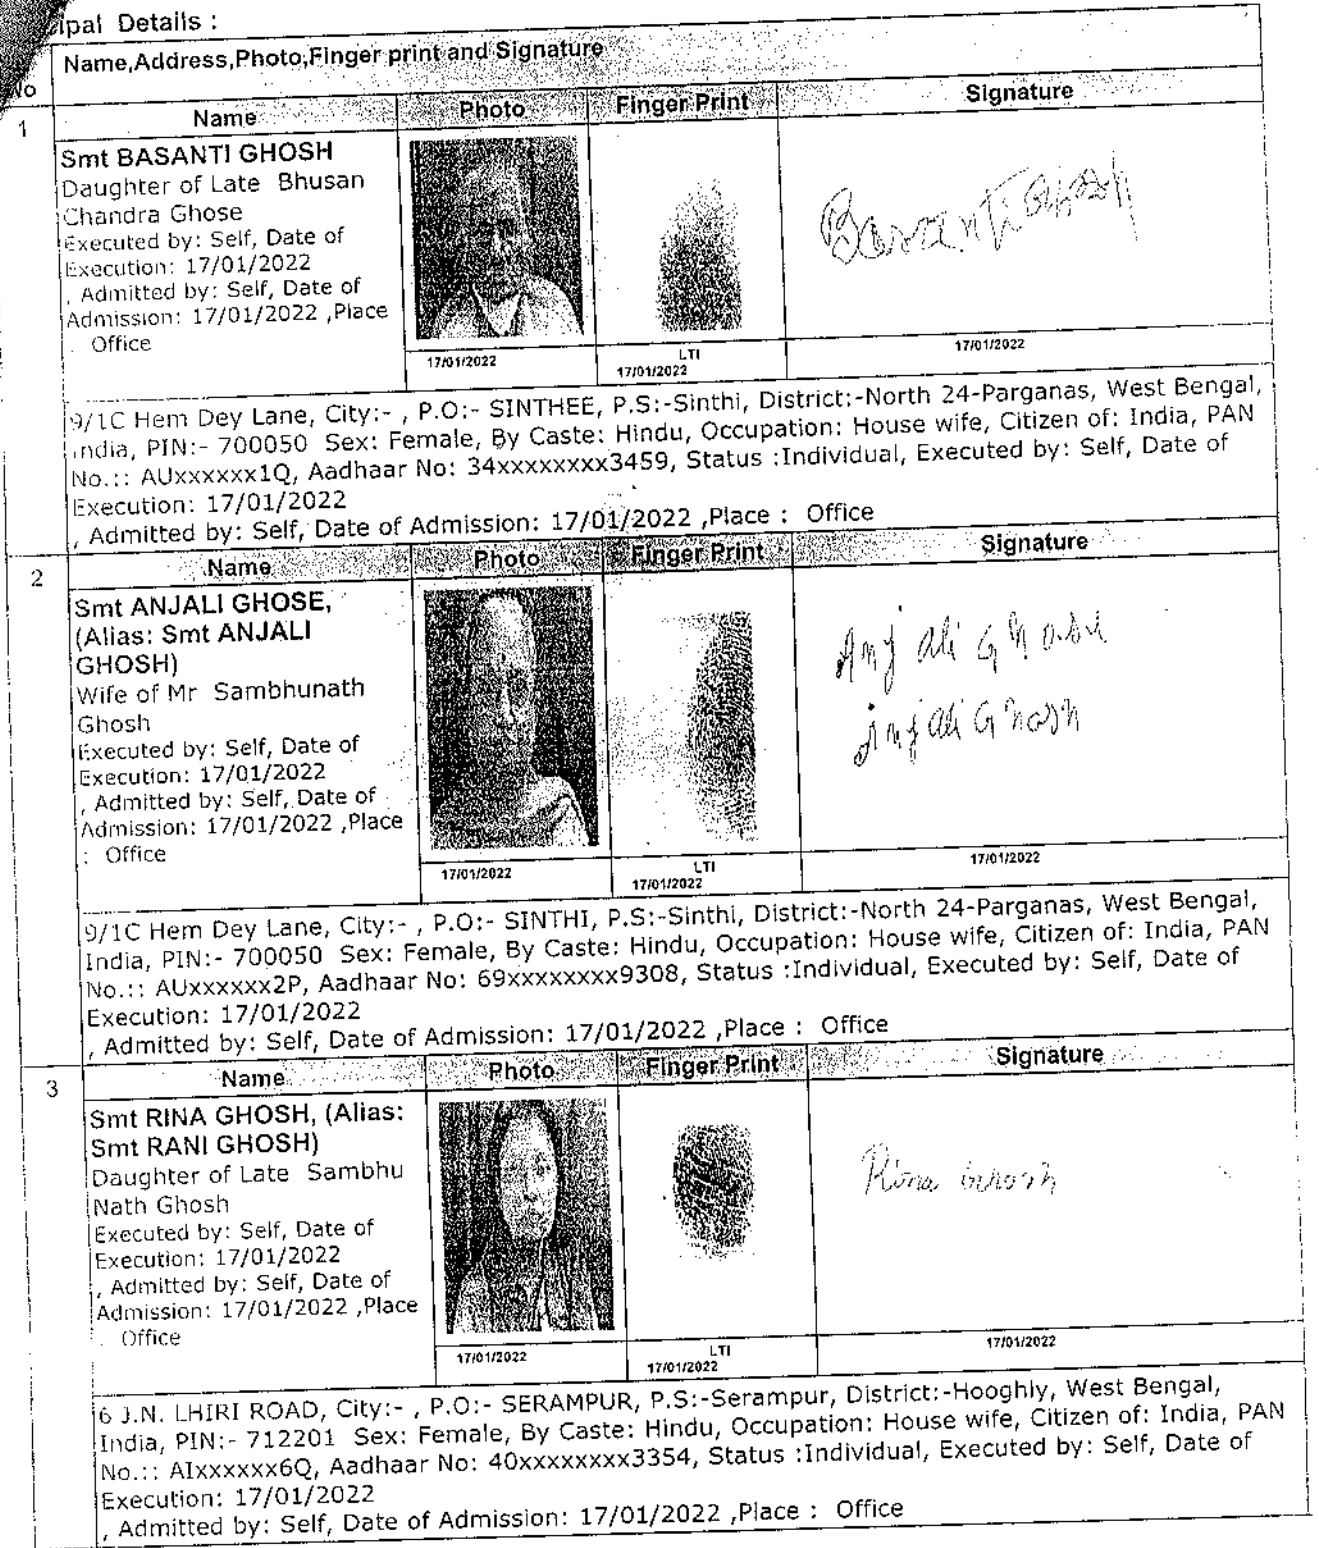 ipal Details :
Name,Address,Photo,Finger print and Signature
No
Name Photo Finger Print Signature
1
Smt BASANTI GHOSH
Daughter of Late Bhusan
Chandra Ghose
Executed by: Self, Date of
Execution: 17/01/2022
, Admitted by: Self, Date of
Admission: 17/01/2022 ,Place
Office
Basanti Ghosh
17/01/2022
LTI
17/01/2022
17/01/2022
9/1C Hem Dey Lane, City:- , P.O:- SINTHEE, P.S:-Sinthi, District:-North 24-Parganas, West Bengal,
India, PIN:- 700050 Sex: Female, By Caste: Hindu, Occupation: House wife, Citizen of: India, PAN
No.:: AUxxxxxx1Q, Aadhaar No: 34xxxxxxxx3459, Status :Individual, Executed by: Self, Date of
Execution: 17/01/2022
, Admitted by: Self, Date of Admission: 17/01/2022 ,Place : Office
Name Photo Finger Print Signature
2
Smt ANJALI GHOSE,
(Alias: Smt ANJALI
GHOSH)
Wife of Mr Sambhunath
Ghosh
Executed by: Self, Date of
Execution: 17/01/2022
, Admitted by: Self, Date of
Admission: 17/01/2022 ,Place
: Office
Anjali Ghose
Anjali Ghosh
17/01/2022
LTI
17/01/2022
17/01/2022
9/1C Hem Dey Lane, City:- , P.O:- SINTHI, P.S:-Sinthi, District:-North 24-Parganas, West Bengal,
India, PIN:- 700050 Sex: Female, By Caste: Hindu, Occupation: House wife, Citizen of: India, PAN
No.:: AUxxxxxx2P, Aadhaar No: 69xxxxxxxx9308, Status :Individual, Executed by: Self, Date of
Execution: 17/01/2022
, Admitted by: Self, Date of Admission: 17/01/2022 ,Place : Office
Name Photo Finger Print Signature
3
Smt RINA GHOSH, (Alias:
Smt RANI GHOSH)
Daughter of Late Sambhu
Nath Ghosh
Executed by: Self, Date of
Execution: 17/01/2022
, Admitted by: Self, Date of
Admission: 17/01/2022 ,Place
Office
Rina Ghosh
17/01/2022
LTI
17/01/2022
17/01/2022
6 J.N. LHIRI ROAD, City:- , P.O:- SERAMPUR, P.S:-Serampur, District:-Hooghly, West Bengal,
India, PIN:- 712201 Sex: Female, By Caste: Hindu, Occupation: House wife, Citizen of: India, PAN
No.:: AIxxxxxx6Q, Aadhaar No: 40xxxxxxxx3354, Status :Individual, Executed by: Self, Date of
Execution: 17/01/2022
, Admitted by: Self, Date of Admission: 17/01/2022 ,Place : Office